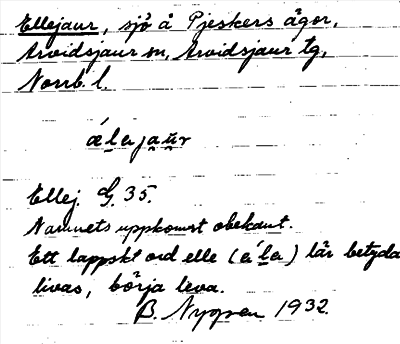 Ellejaur, sjö å Pjeskers ägor,
Arvidsjaur sn, Arvidsjaur tg,
Norrb. l.
álajau̯r
Ellej. G. 35.
Namnets uppkomst obekant.
Ett lappskt ord elle (ála) lär betyda
livas, börja leva.
B. Nygren 1932.